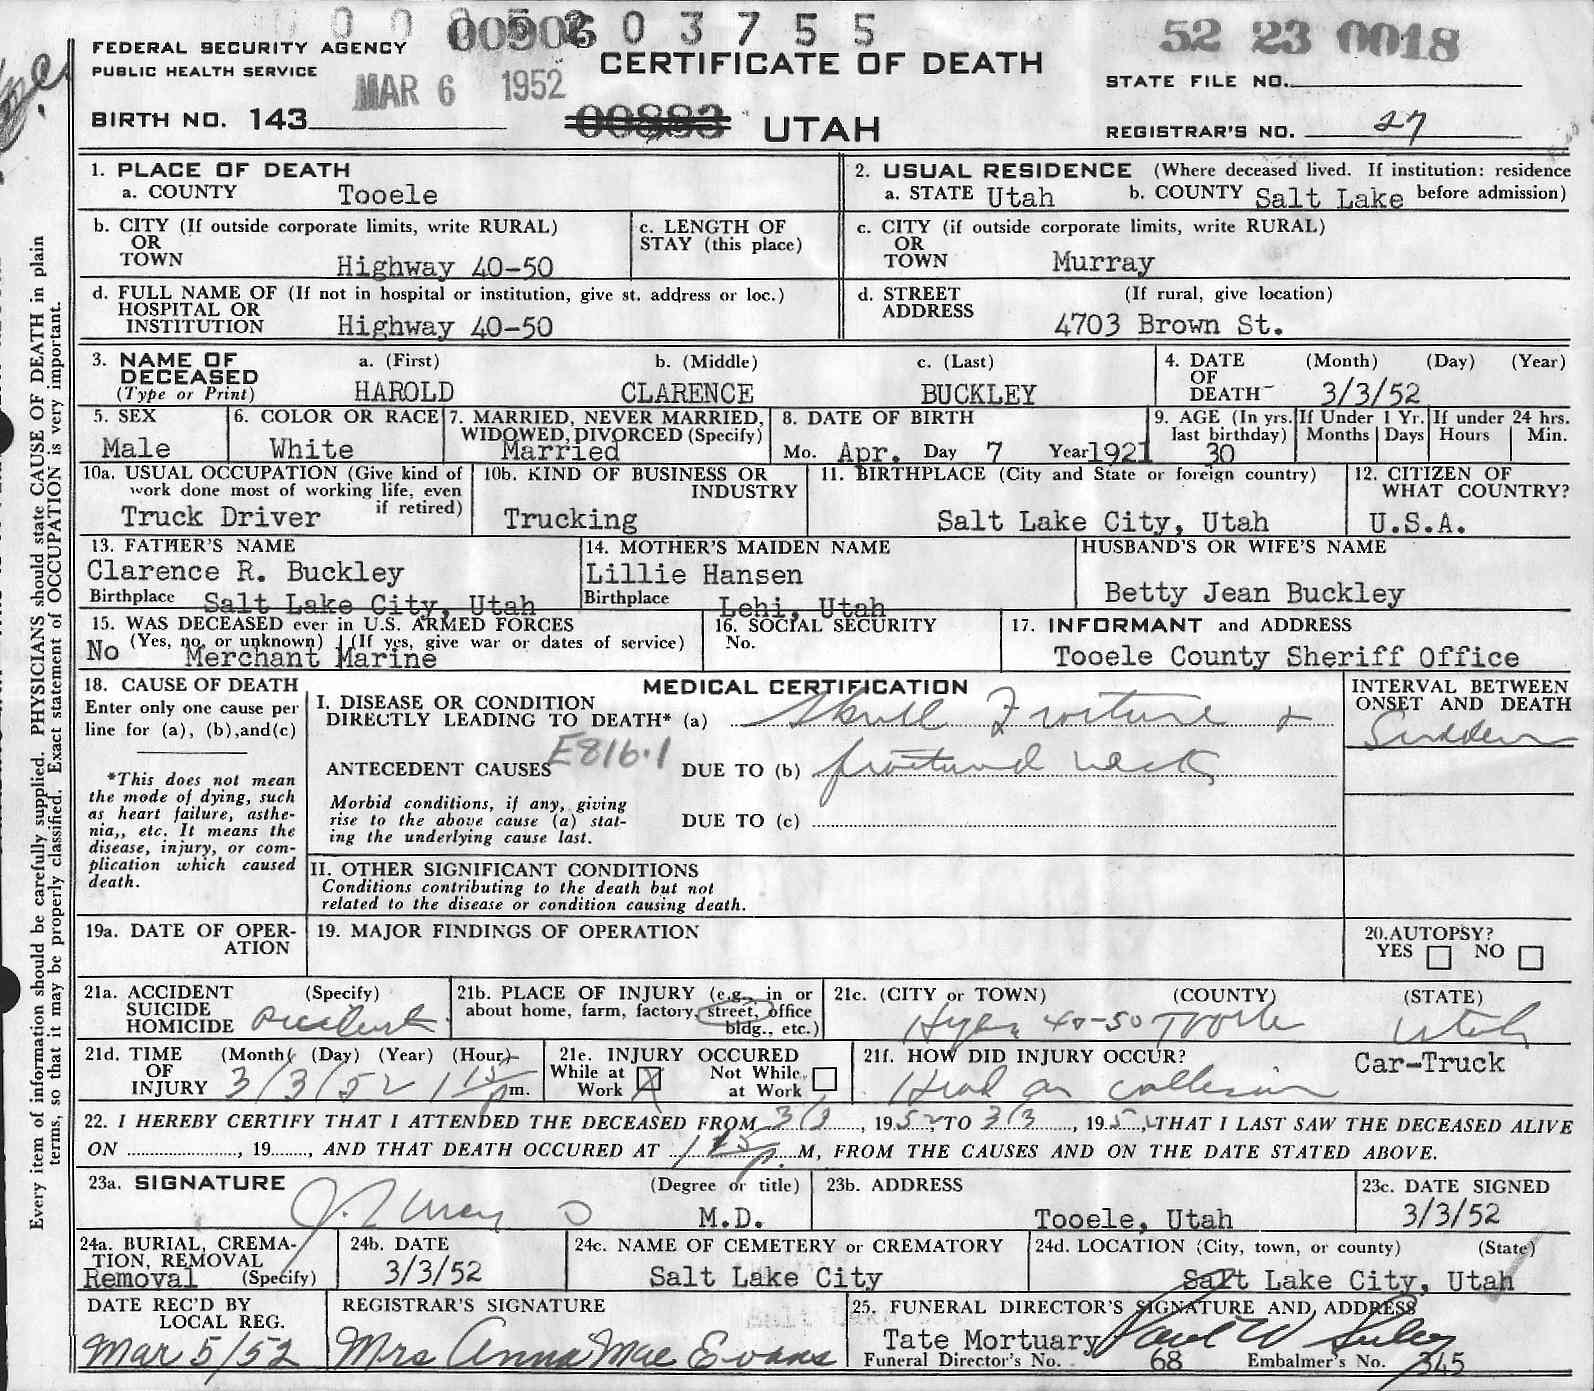 0 0 0 5 2 0 3 7 5 5
00906
52 23 0018
FEDERAL SECURITY AGENCY
PUBLIC HEALTH SERVICE
MAR 6 1952
CERTIFICATE OF DEATH
STATE FILE NO.
BIRTH NO. 143
00883
UTAH
REGISTRAR'S NO. 27
1. PLACE OF DEATH
a. COUNTY Tooele
2. USUAL RESIDENCE (Where deceased lived. If institution: residence
a. STATE Utah b. COUNTY Salt Lake before admission)
b. CITY (If outside corporate limits, write RURAL)
OR
TOWN Highway 40-50
c. LENGTH OF
STAY (this place)
c. CITY (if outside corporate limits, write RURAL)
OR
TOWN Murray
d. FULL NAME OF (If not in hospital or institution, give st. address or loc.)
HOSPITAL OR
INSTITUTION Highway 40-50
d. STREET (If rural, give location)
ADDRESS 4703 Brown St.
3. NAME OF a. (First) b. (Middle) c. (Last)
DECEASED
(Type or Print) HAROLD CLARENCE BUCKLEY
4. DATE (Month) (Day) (Year)
OF
DEATH 3/3/52
5. SEX
Male
6. COLOR OR RACE
White
7. MARRIED, NEVER MARRIED,
WIDOWED, DIVORCED (Specify)
Married
8. DATE OF BIRTH
Mo. Apr. Day 7 Year 1921
9. AGE (In yrs.
last birthday)
30
If Under 1 Yr.
Months Days
If under 24 hrs.
Hours Min.
10a. USUAL OCCUPATION (Give kind of
work done most of working life, even
if retired)
Truck Driver
10b. KIND OF BUSINESS OR
INDUSTRY
Trucking
11. BIRTHPLACE (City and State or foreign country)
Salt Lake City, Utah
12. CITIZEN OF
WHAT COUNTRY?
U.S.A.
13. FATHER'S NAME
Clarence R. Buckley
Birthplace Salt Lake City, Utah
14. MOTHER'S MAIDEN NAME
Lillie Hansen
Birthplace Lehi, Utah
HUSBAND'S OR WIFE'S NAME
Betty Jean Buckley
15. WAS DECEASED ever in U.S. ARMED FORCES
(Yes, no, or unknown) (If yes, give war or dates of service)
No Merchant Marine
16. SOCIAL SECURITY
No.
17. INFORMANT and ADDRESS
Tooele County Sheriff Office
18. CAUSE OF DEATH
Enter only one cause per
line for (a), (b), and (c)
*This does not mean
the mode of dying, such
as heart failure, asthe-
nia,, etc. It means the
disease, injury, or com-
plication which caused
death.
MEDICAL CERTIFICATION
I. DISEASE OR CONDITION
DIRECTLY LEADING TO DEATH* (a) Skull Fracture &
E816.1
ANTECEDENT CAUSES DUE TO (b) fractured neck
Morbid conditions, if any, giving
rise to the above cause (a) stat-
ing the underlying cause last.
DUE TO (c)
INTERVAL BETWEEN
ONSET AND DEATH
Sudden
II. OTHER SIGNIFICANT CONDITIONS
Conditions contributing to the death but not
related to the disease or condition causing death.
19a. DATE OF OPER-
ATION
19. MAJOR FINDINGS OF OPERATION
20. AUTOPSY?
YES NO
21a. ACCIDENT (Specify)
SUICIDE
HOMICIDE accident
21b. PLACE OF INJURY (e.g., in or
about home, farm, factory, street, office
bldg., etc.)
21c. (CITY or TOWN) (COUNTY) (STATE)
40-50 Tooele Utah
21d. TIME (Month) (Day) (Year) (Hour)
OF
INJURY 3/3/52 1 15 p m.
21e. INJURY OCCURED
While at Work X Not While at Work
21f. HOW DID INJURY OCCUR? Car-Truck
Head on collision
22. I HEREBY CERTIFY THAT I ATTENDED THE DECEASED FROM 3/3, 1952, TO 3/3, 1952, THAT I LAST SAW THE DECEASED ALIVE
ON , 19 , AND THAT DEATH OCCURED AT 1 15 p. M, FROM THE CAUSES AND ON THE DATE STATED ABOVE.
23a. SIGNATURE (Degree or title)
M.D.
23b. ADDRESS
Tooele, Utah
23c. DATE SIGNED
3/3/52
24a. BURIAL, CREMA-
TION, REMOVAL
Removal (Specify)
24b. DATE
3/3/52
24c. NAME OF CEMETERY or CREMATORY
Salt Lake City
24d. LOCATION (City, town, or county) (State)
Salt Lake City, Utah
DATE REC'D BY
LOCAL REG.
Mar 5/52
REGISTRAR'S SIGNATURE
Mrs Anna Mae Evans
25. FUNERAL DIRECTOR'S SIGNATURE AND ADDRESS
Tate Mortuary
Funeral Director's No. 68 Embalmer's No. 345
Every item of information should be carefully supplied. PHYSICIANS should state CAUSE OF DEATH in plain
terms, so that it may be properly classified. Exact statement of OCCUPATION is very important.